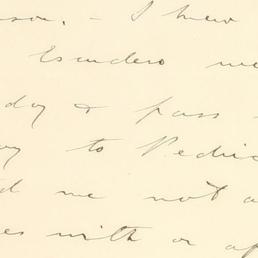 son. - I knew
Escudero me
day & pass
to Pedri
d me not a
es with or ap